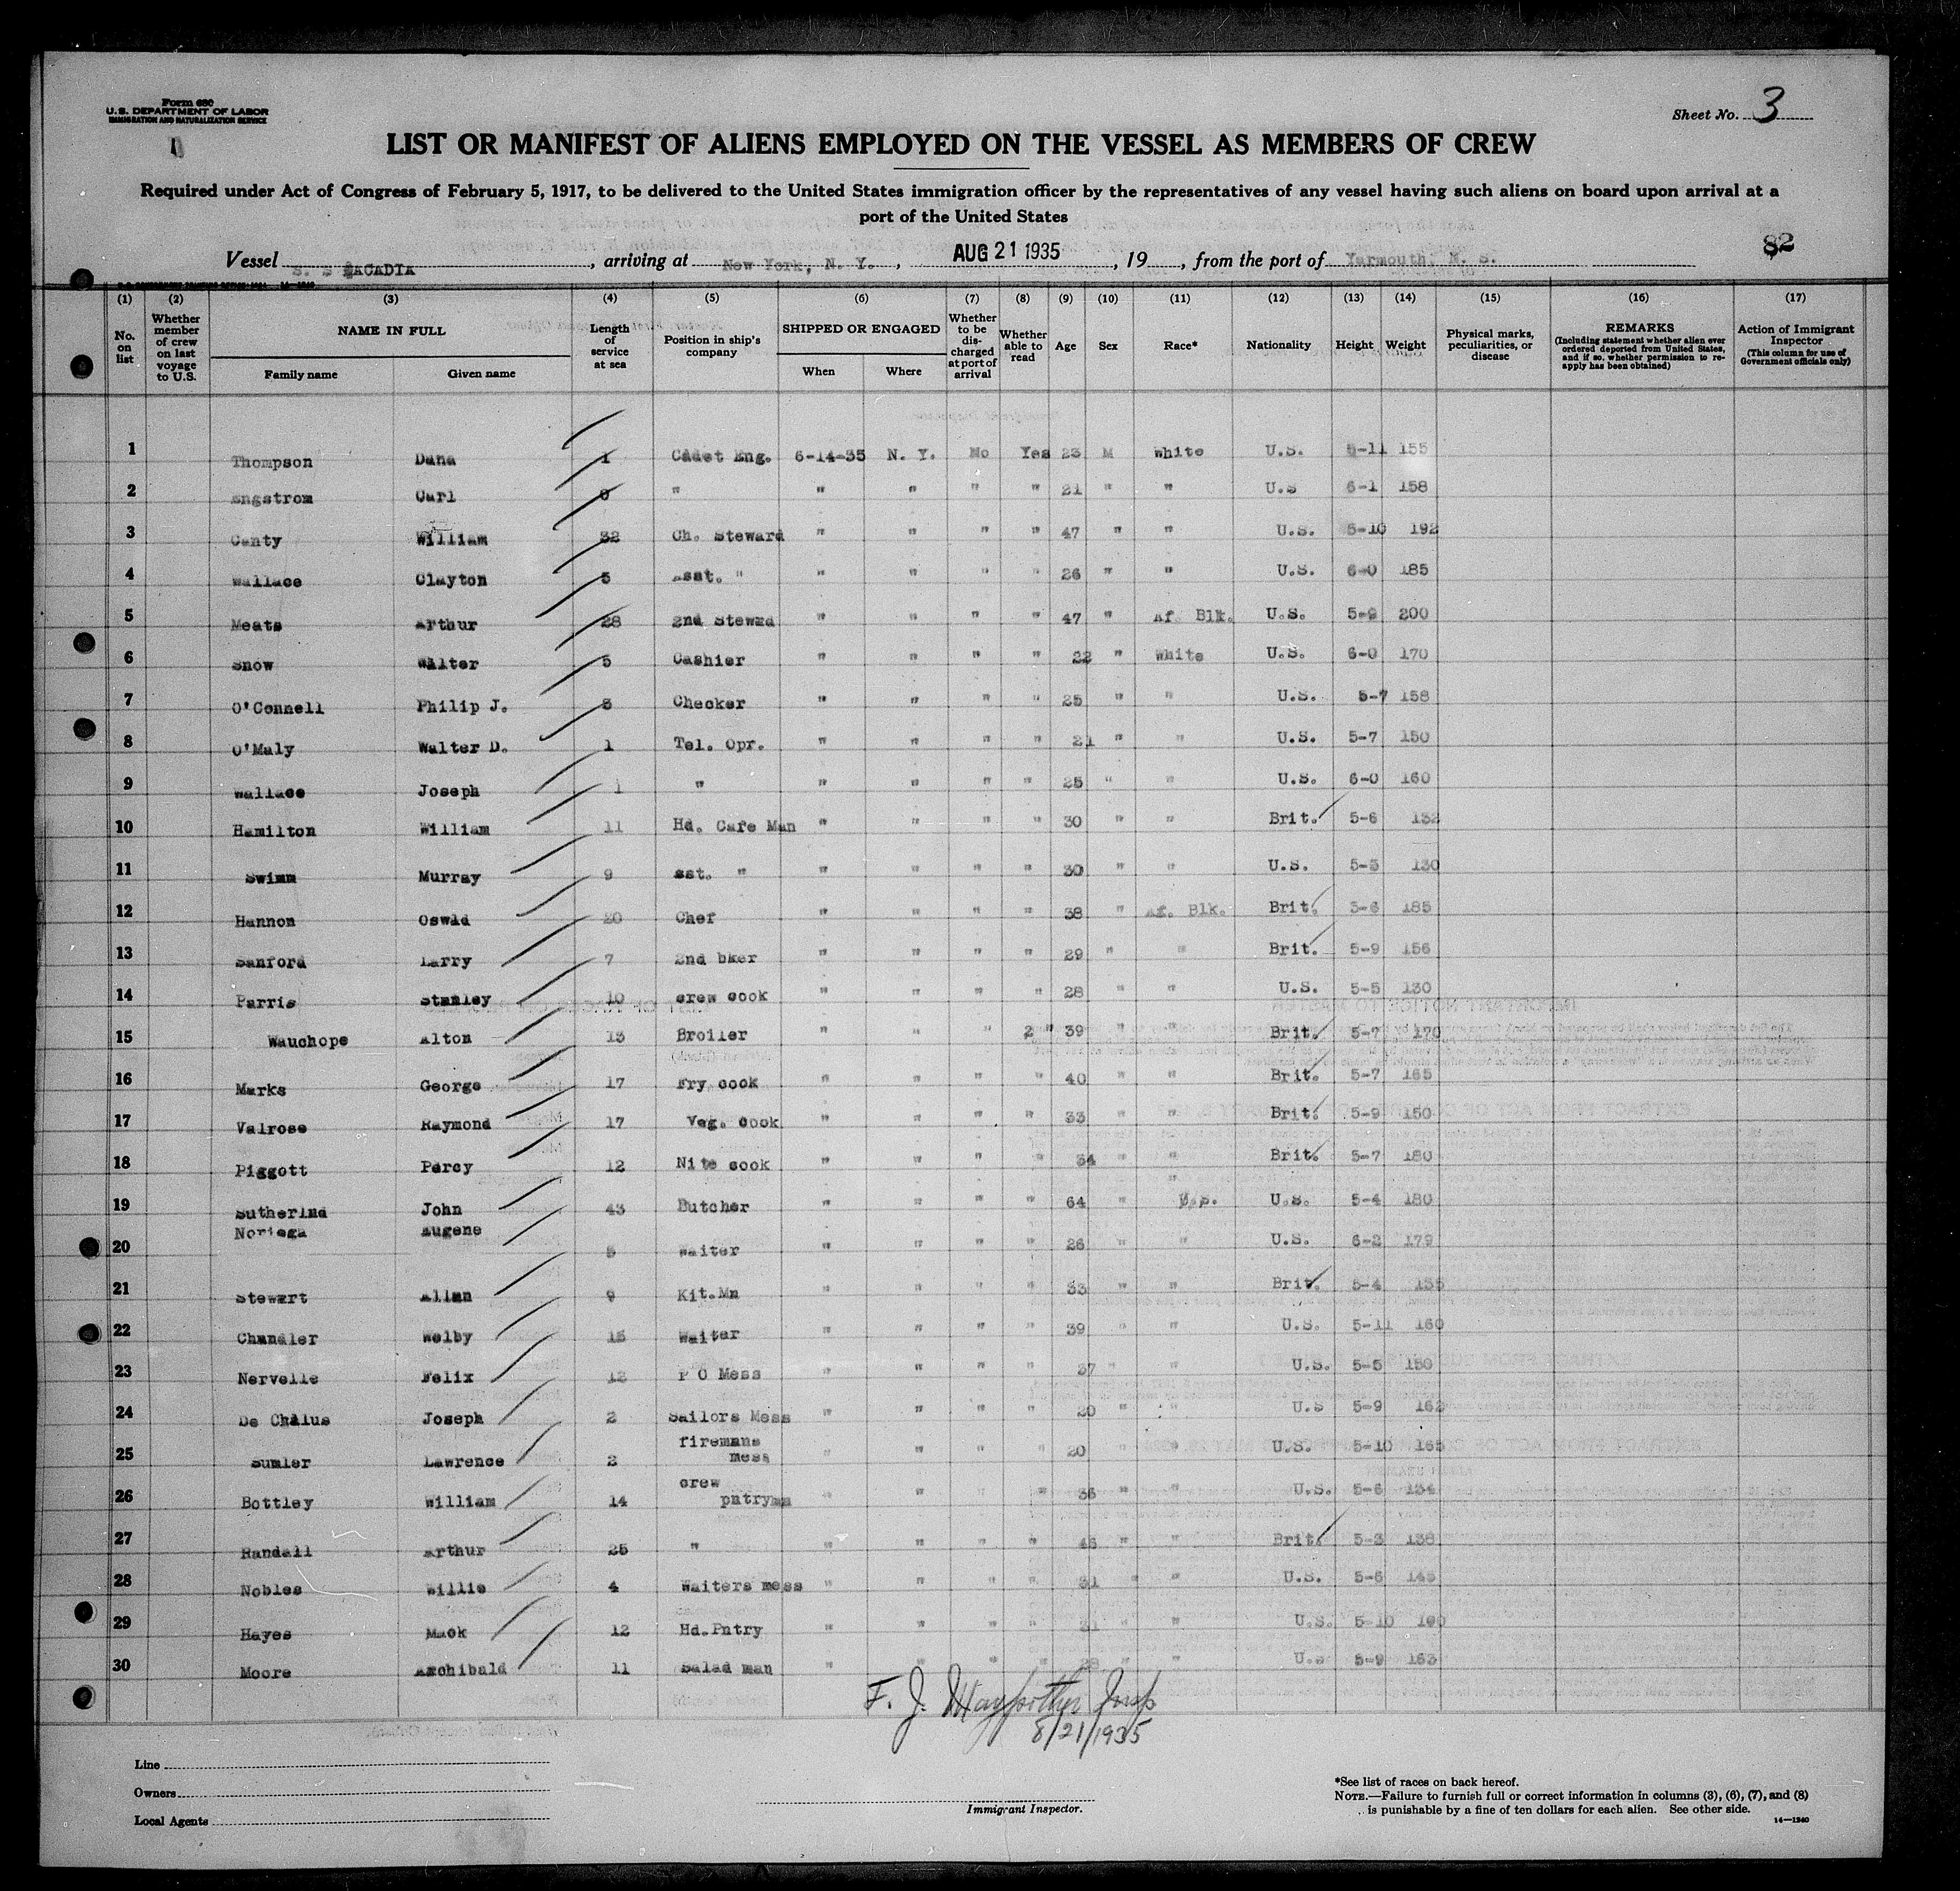 Form 680
U.S. DEPARTMENT OF LABOR
IMMIGRATION AND NATURALIZATION SERVICE
Sheet No. 3
LIST OR MANIFEST OF ALIENS EMPLOYED ON THE VESSEL AS MEMBERS OF CREW
Required under Act of Congress of February 5, 1917, to be delivered to the United States immigration officer by the representatives of any vessel having such aliens on board upon arrival at a
port of the United States
82
Vessel S. S ACADIA, arriving at New York, N. Y., AUG 21 1935, 19, from the port of Yarmouth, N. S.
(1) (2) (3) (4) (5) (6) (7) (8) (9) (10) (11) (12) (13) (14) (15) (16) (17)
No. on list
Whether member of crew on last voyage to U.S.
NAME IN FULL
Family name
Given name
Length of service at sea
Position in ship's company
SHIPPED OR ENGAGED
When
Where
Whether to be discharged at port of arrival
Whether able to read
Age
Sex
Race*
Nationality
Height
Weight
Physical marks, peculiarities, or disease
REMARKS
(Including statement whether alien ever ordered deported from United States, and if so, whether permission to re-apply has been obtained)
Action of Immigrant Inspector
(This column for use of Government officials only)
1 Thompson Dana 1 Cadet Eng. 6-14-35 N. Y. No Yes 23 M White U.S. 5-11 155
2 Engstrom Carl " " " " " 21 " " U.S 6-1 158
3 Canty William 32 Ch. Steward " " " " 47 " " U.S. 5-10 192
4 Wallace Clayton 5 Asst. " " " " " 26 " " U.S. 6-0 185
5 Meats Arthur 28 2nd Stewrd " " " " 47 " Af. Blk. U.S. 5-9 200
6 Snow Walter 5 Cashier " " " " 22 " White U.S. 6-0 170
7 O'Connell Philip J. Checker " " " " 25 " " U.S. 5-7 158
8 O'Maly Walter D. 1 Tel. Opr. " " " " 21 " " U.S. 5-7 150
9 Wallace Joseph 1 " " " " " 25 " " U.S. 6-0 160
10 Hamilton William 11 Hd. Cafe Man " " " " 30 " " Brit. 5-6 132
11 Swimm Murray 9 sst. " " " " " 30 " " U.S. 5-3 130
12 Hannon Oswld 20 Chef " " " " 38 " Af. Blk. Brit. 5-6 185
13 Sanford Larry 7 2nd bker " " " " 29 " " Brit. 5-9 156
14 Parris Stanley 10 crew cook " " " " 28 " " U.S. 5-5 130
15 Wauchope Alton 13 Broiler " " " 2" 39 " " Brit. 5-7 170
16 Marks George 17 Fry cook " " " " 40 " " Brit. 5-7 165
17 Valrose Raymond 17 Veg. cook " " " " 33 " " Brit. 5-9 150
18 Piggott Percy 12 Nite cook " " " " 34 " " Brit. 5-7 180
19 Sutherlnd John 43 Butcher " " " " 64 " " U.S. 5-4 180
20 Noriega Eugene 5 Waiter " " " " 26 " " U.S. 6-2 179
21 Stewart Allan 9 Kit.Mn " " " " 33 " " Brit. 5-4 135
22 Chandler Welby 15 Waiter " " " " 39 " " U.S. 5-11 160
23 Nervelle Felix 12 P O Mess " " " " 37 " " U.S. 5-5 150
24 De Chalus Joseph 2 Sailors Mess " " " " 20 " " U.S 5-9 162
25 Sumler Lawrence 2 firemans mess " " " " 20 " " U.S. 5-10 165
26 Bottley William 14 crew pntrymn " " " " 36 " " U.S. 5-6 134
27 Randall Arthur 25 " " " " " 46 " " Brit. 5-3 138
28 Nobles Willie 4 Waiters mess " " " " 31 " " U.S. 5-6 145
29 Hayes Mack 12 Hd.Pntry " " " " 21 " " U.S. 5-10 190
30 Moore Archibald 11 Salad man " " " " " " U.S 5-9 163
F. J. Insp
8/21/1935
Line
Owners
Local Agents
Immigrant Inspector.
*See list of races on back hereof.
NOTE.—Failure to furnish full or correct information in columns (3), (6), (7), and (8)
is punishable by a fine of ten dollars for each alien. See other side.
14—1240